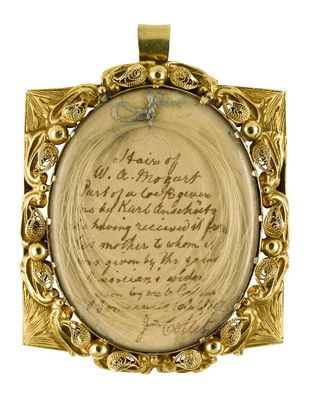 Hair of
W. A. Mozart
Part of a lock given
me by Karl Anschütz
his having received it from
his mother to whom it
was given by the great
musician's widow
given by me to